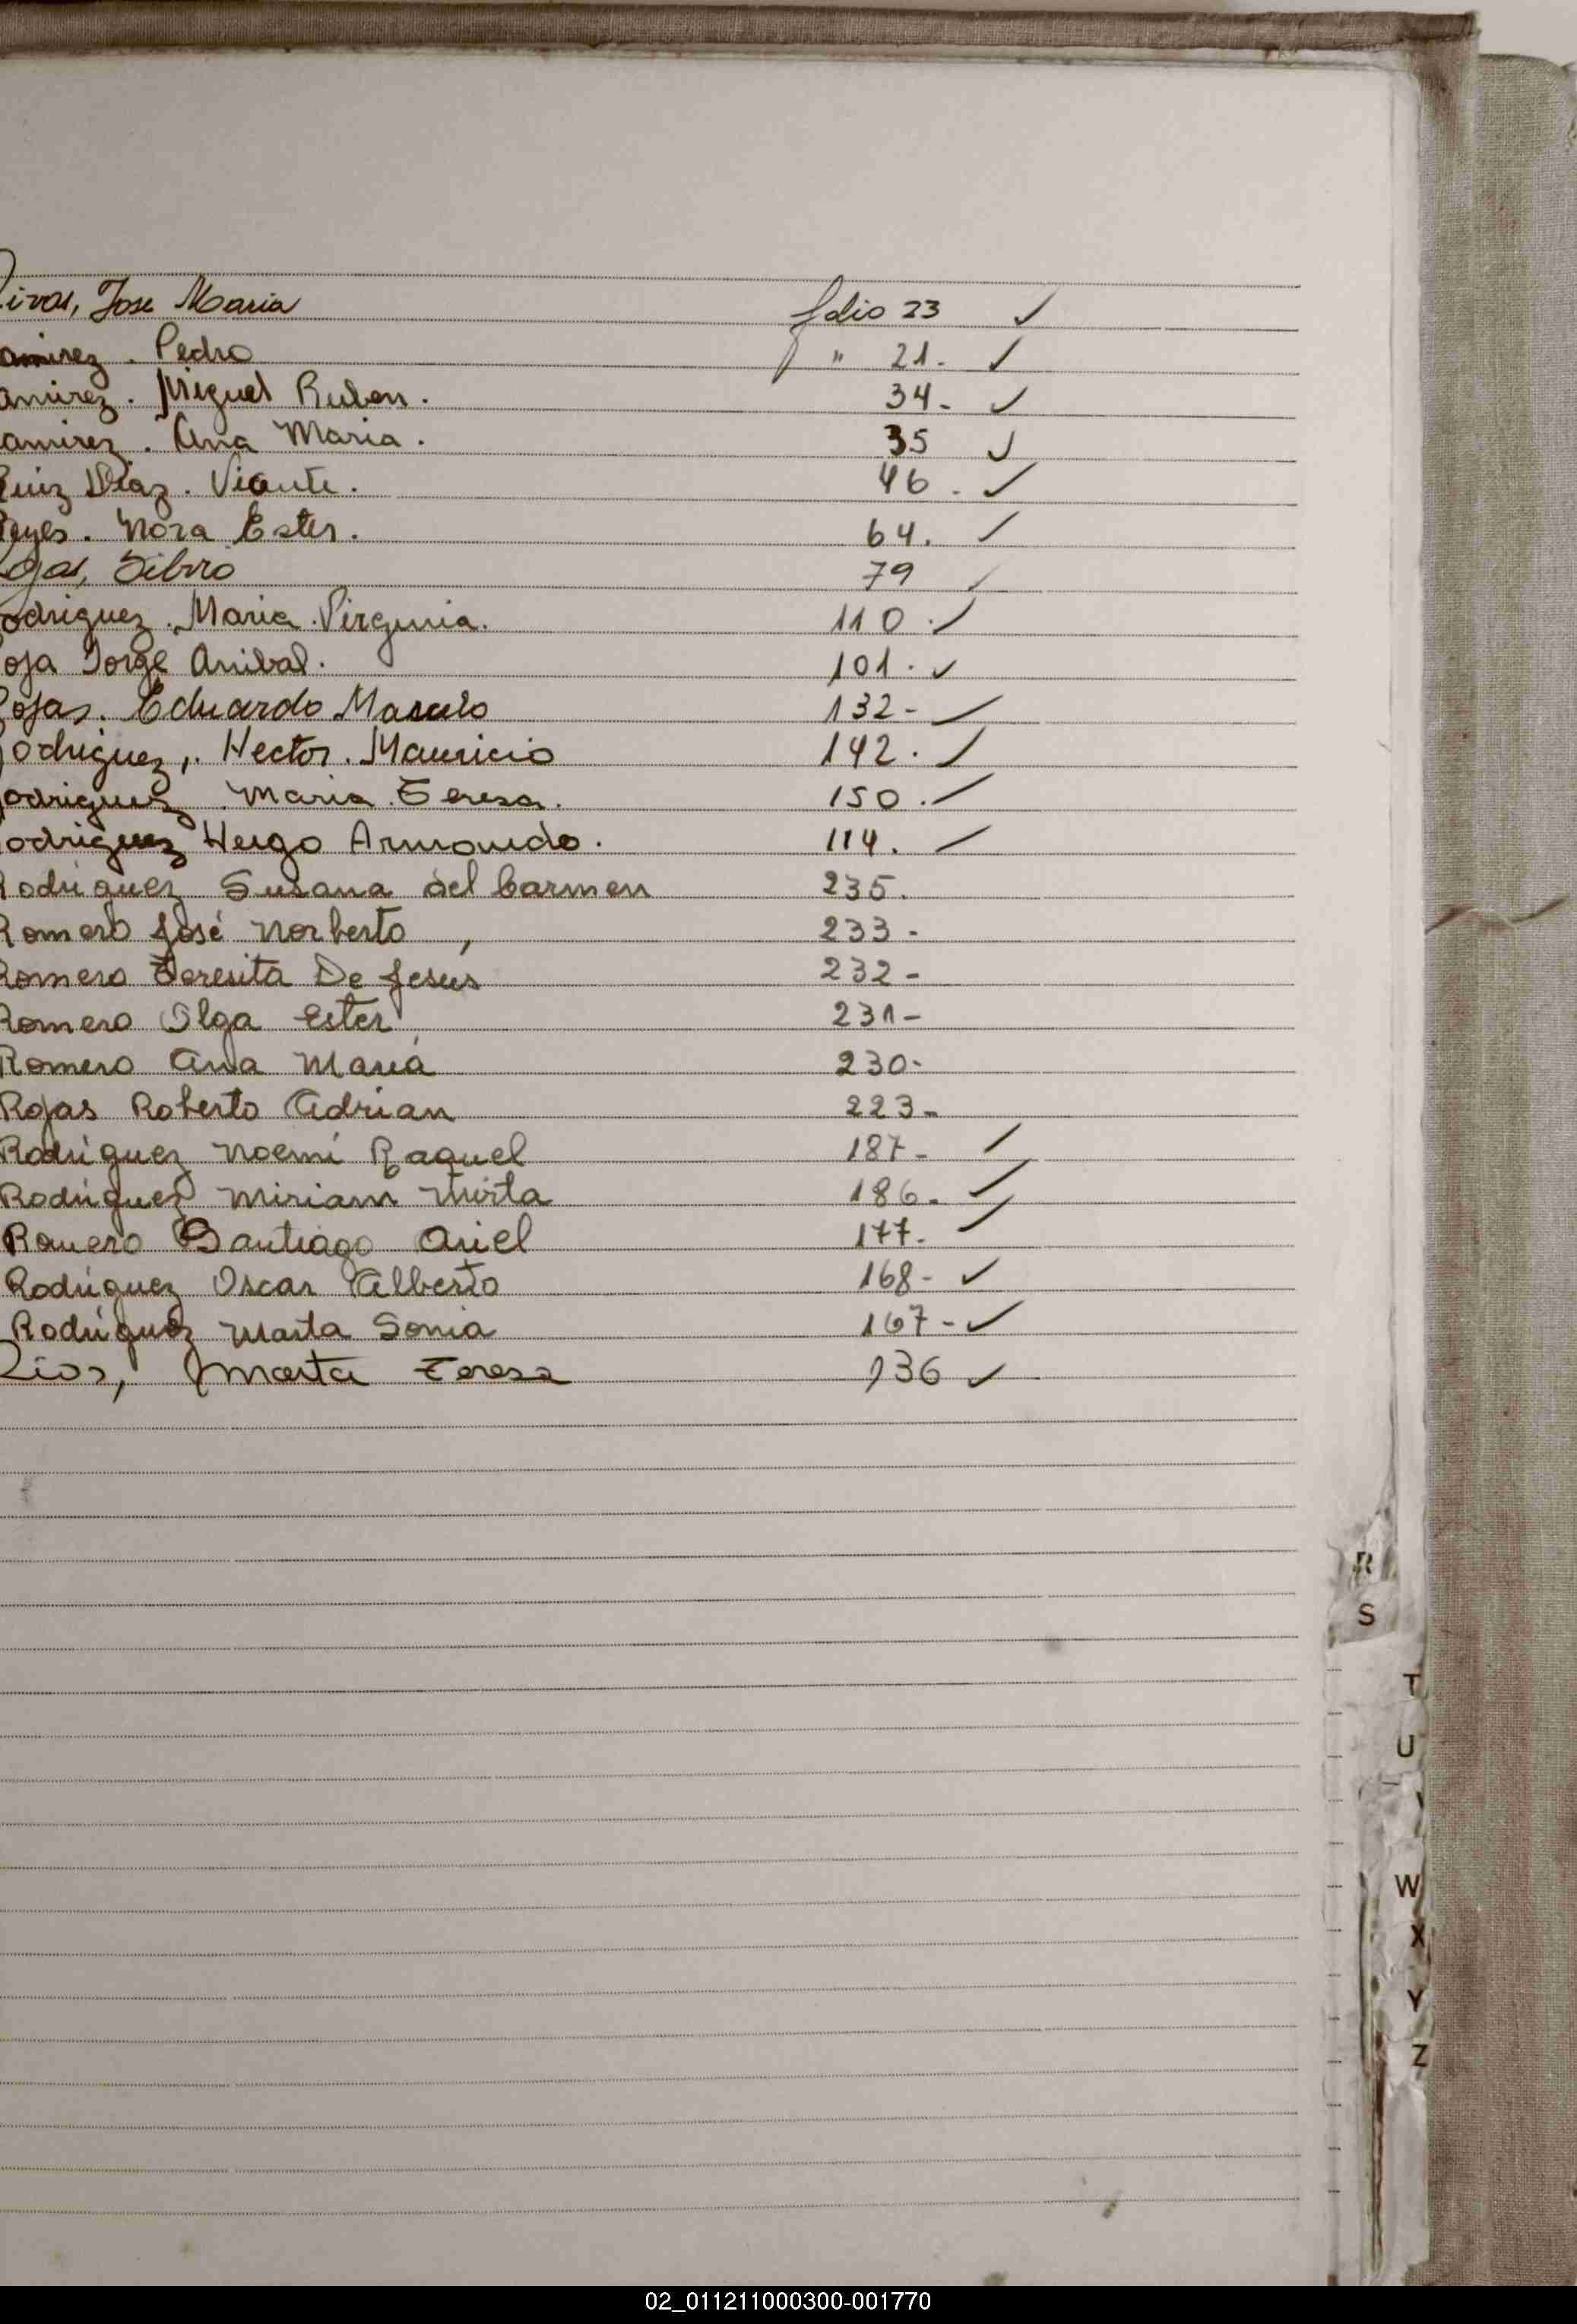 Rivas, Jose Maria folio 23 ✓
amirez . Pedro " 21. ✓
amirez . Miguel Ruben . 34- ✓
amirez . Ana Maria . 35 ✓
Ruiz Diaz . Vicente . 46 . ✓
Reyes . Nora Ester . 64. ✓
ojas, Silvio 79 ✓
odriguez . Maria . Virginia . 110 . ✓
oja Jorge Anibal . 101 . ✓
Rojas . Eduardo Marcelo 132 - ✓
Rodriguez, . Hector . Mauricio 142 . ✓
odriguez . Maria . Teresa . 150 . ✓
odriguez Hugo Armando . 114 . ✓
Rodriguez Susana del Carmen 235.
Romero José Norberto , 233 -
Romero Teresita De Jesús 232 -
Romero Olga Ester 231 -
Romero Ana María 230-
Rojas Roberto Adrian 223 -
Rodríguez Noemí Raquel 187 - ✓
Rodríguez Miriam Mirta 186 - ✓
Romero Santiago Ariel 177 - ✓
Rodríguez Oscar Alberto 168 - ✓
Rodríguez Marta Sonia 167 - ✓
Rios, Marta Teresa 136 ✓
R
S
T
U
W
X
Y
Z
02_011211000300-001770